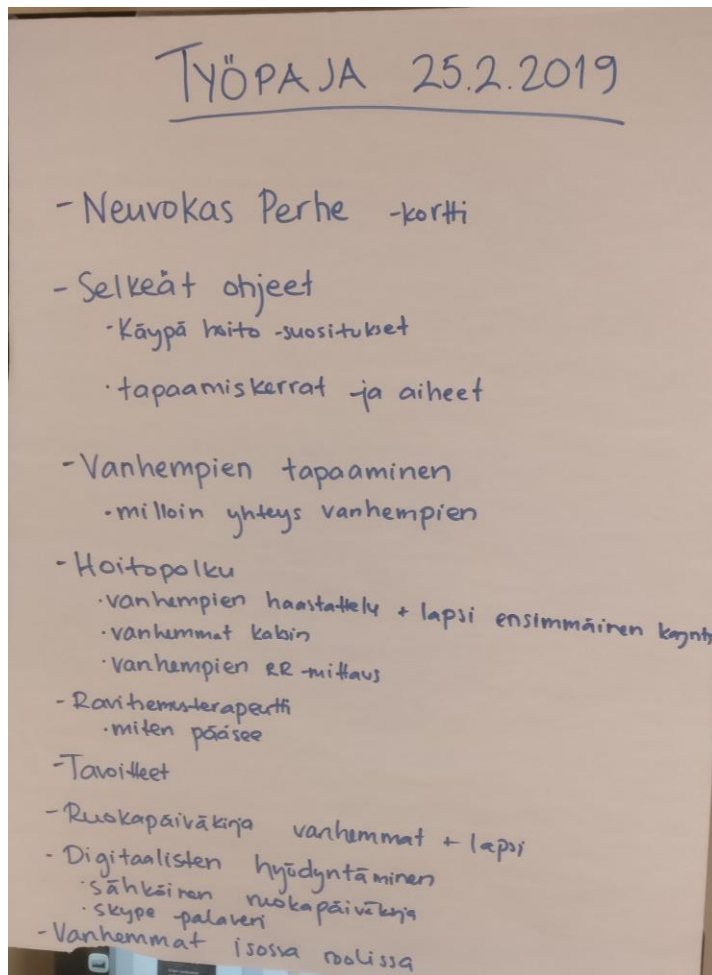 TYÖPAJA 25.2.2019
- Neuvokas Perhe -kortti
- Selkeät ohjeet
· Käypä hoito -suositukset
· tapaamiskerrat -ja aiheet
- Vanhempien tapaaminen
· milloin yhteys vanhempien
- Hoitopolku
· vanhempien haastattelu + lapsi ensimmäinen käynti
· vanhemmat kaksin
· vanhempien RR -mittaus
- Ravitsemusterapeutti
· miten pääsee
- Tavoitteet
- Ruokapäiväkirja vanhemmat + lapsi
- Digitaalisten hyödyntäminen
· sähköinen ruokapäiväkirja
· skype palaveri
- Vanhemmat isossa roolissa